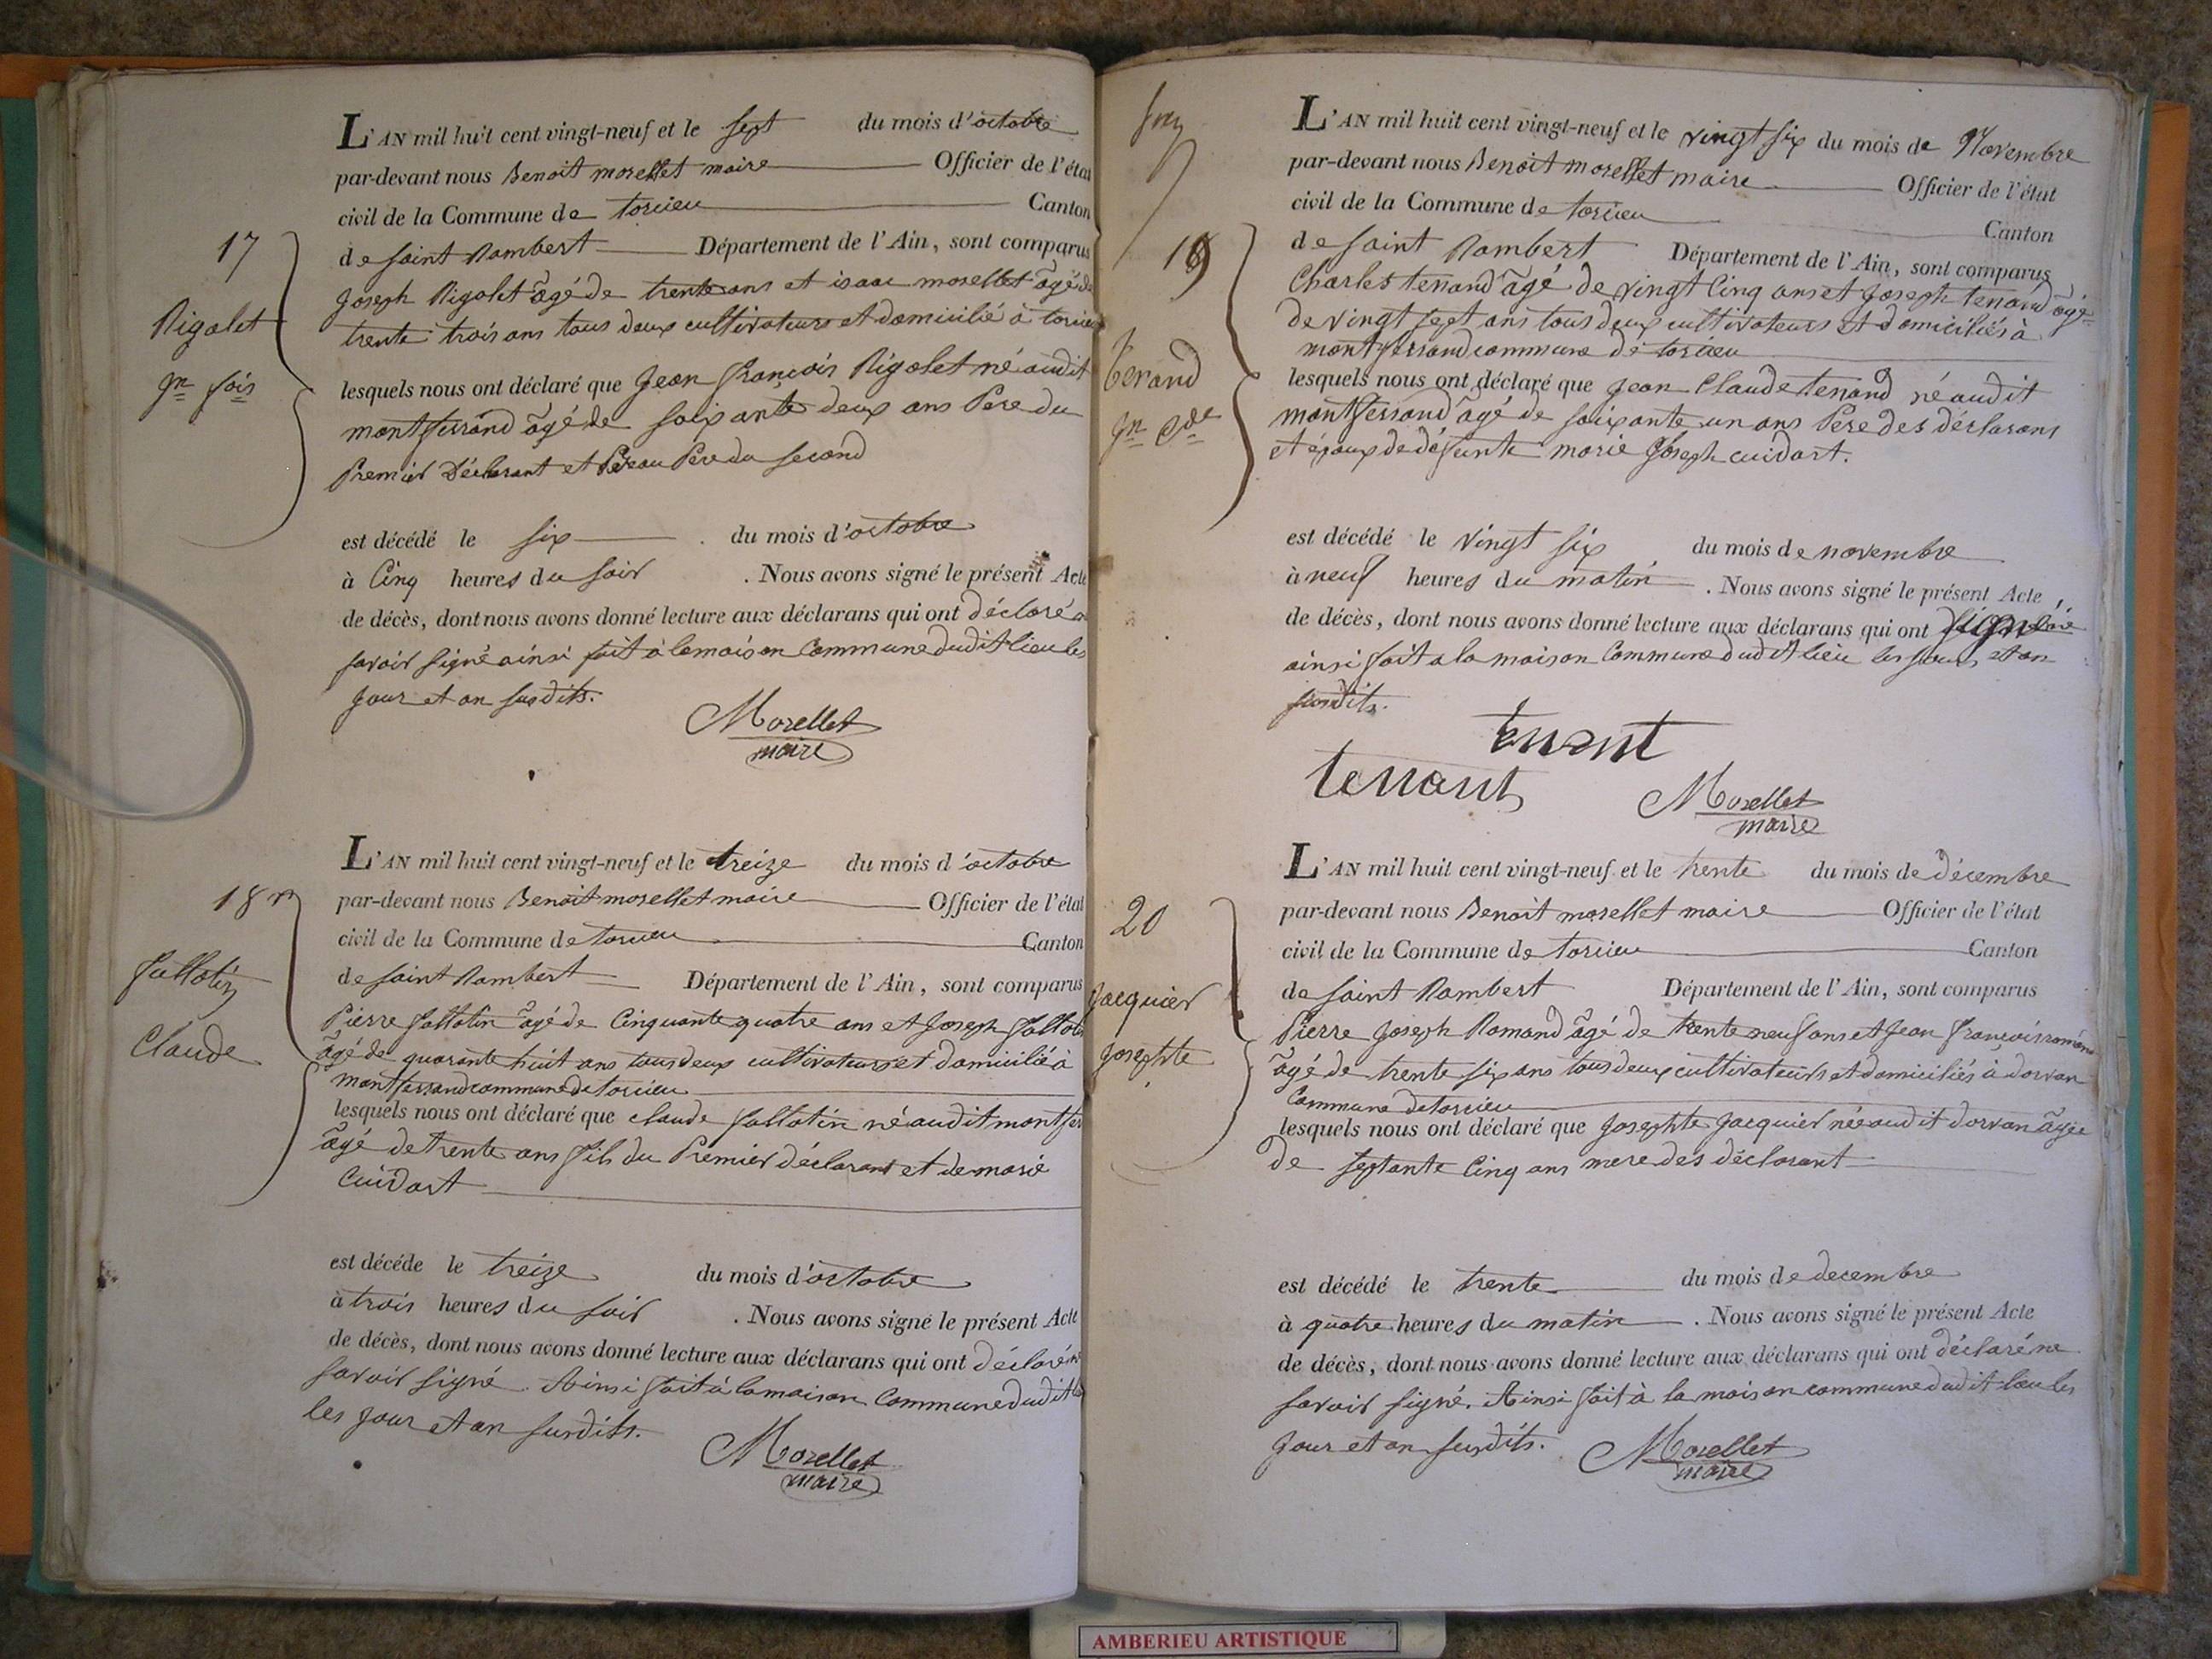 17
Rigolet
Jn fois
L'AN mil huit cent vingt-neuf et le sept du mois d'octobre
par-devant nous Benoit morellet maire Officier de l'état
civil de la Commune de torcieu Canton
de saint Rambert Département de l'Ain, sont comparus
Joseph Rigolet âgé de trente ans et isaac morellet âgé de
trente trois ans tous deux cultivateurs et domicilié à torcieu
lesquels nous ont déclaré que Jean françois Rigolet né audit
montferrand âgé de soixante deux ans Pere du
Premier Déclarant et Beau Pere du second
est décédé le six du mois d'octobre
à Cinq heures du soir . Nous avons signé le présent Acte
de décès, dont nous avons donné lecture aux déclarans qui ont déclaré
savoir signé ainsi fait à la maison Commune dudit lieu les
jour et an susdits.
Morellet
maire
18
fallotin
Claude
L'AN mil huit cent vingt-neuf et le treize du mois d'octobre
par-devant nous Benoit morellet maire Officier de l'état
civil de la Commune de torcieu Canton
de saint Rambert Département de l'Ain, sont comparus
Pierre fallotin âgé de Cinquante quatre ans et Joseph fallotin
âgé de quarante huit ans tous deux cultivateurs et domicilié à
montferrand commune de torcieu
lesquels nous ont déclaré que claude fallotin né audit montfer
âgé de trente ans fils du Premier déclarant et de marie
Cuidart
est décédé le treize du mois d'octobre
à trois heures du soir . Nous avons signé le présent Acte
de décès, dont nous avons donné lecture aux déclarans qui ont déclaré ne
savoir signé. Ainsi fait à la maison Commune dudit
les jour et an susdits.
Morellet
maire
19
tenand
Jn Cde
L'AN mil huit cent vingt-neuf et le vingt six du mois de 9novembre
par-devant nous Benoit morellet maire Officier de l'état
civil de la Commune de torcieu Canton
de saint Rambert Département de l'Ain, sont comparus
Charles tenand âgé de vingt Cinq ans et Joseph tenand âgé
de vingt sept ans tous deux cultivateurs et domiciliés à
montferrand commune de torcieu
lesquels nous ont déclaré que Jean Claude tenand né audit
montferrand âgé de soixante un ans Pere des déclarans
et époux de défunte marie Joseph cuidart.
est décédé le vingt six du mois de novembre
à neuf heures du matin . Nous avons signé le présent Acte
de décès, dont nous avons donné lecture aux déclarans qui ont signé
ainsi fait a la maison Commune dudit lieu les jours et an
susdits.
tenant
tenant
Morellet
maire
20
Jacquier
Josephte
L'AN mil huit cent vingt-neuf et le trente du mois de décembre
par-devant nous Benoit morellet maire Officier de l'état
civil de la Commune de torcieu Canton
de saint Rambert Département de l'Ain, sont comparus
Pierre Joseph Romand âgé de trente neuf ans et Jean françois romand
âgé de trente six ans tous deux cultivateurs et domiciliés à dorvan
Commune de torcieu
lesquels nous ont déclaré que Josephte Jacquier née audit dorvan âgée
de septante Cinq ans mere des déclarant
est décédé le trente du mois de decembre
à quatre heures du matin . Nous avons signé le présent Acte
de décès, dont nous avons donné lecture aux déclarans qui ont déclaré ne
savoir signé. Ainsi fait à la maison commune dudit lieu les
jour et an susdits.
Morellet
maire
AMBERIEU ARTISTIQUE